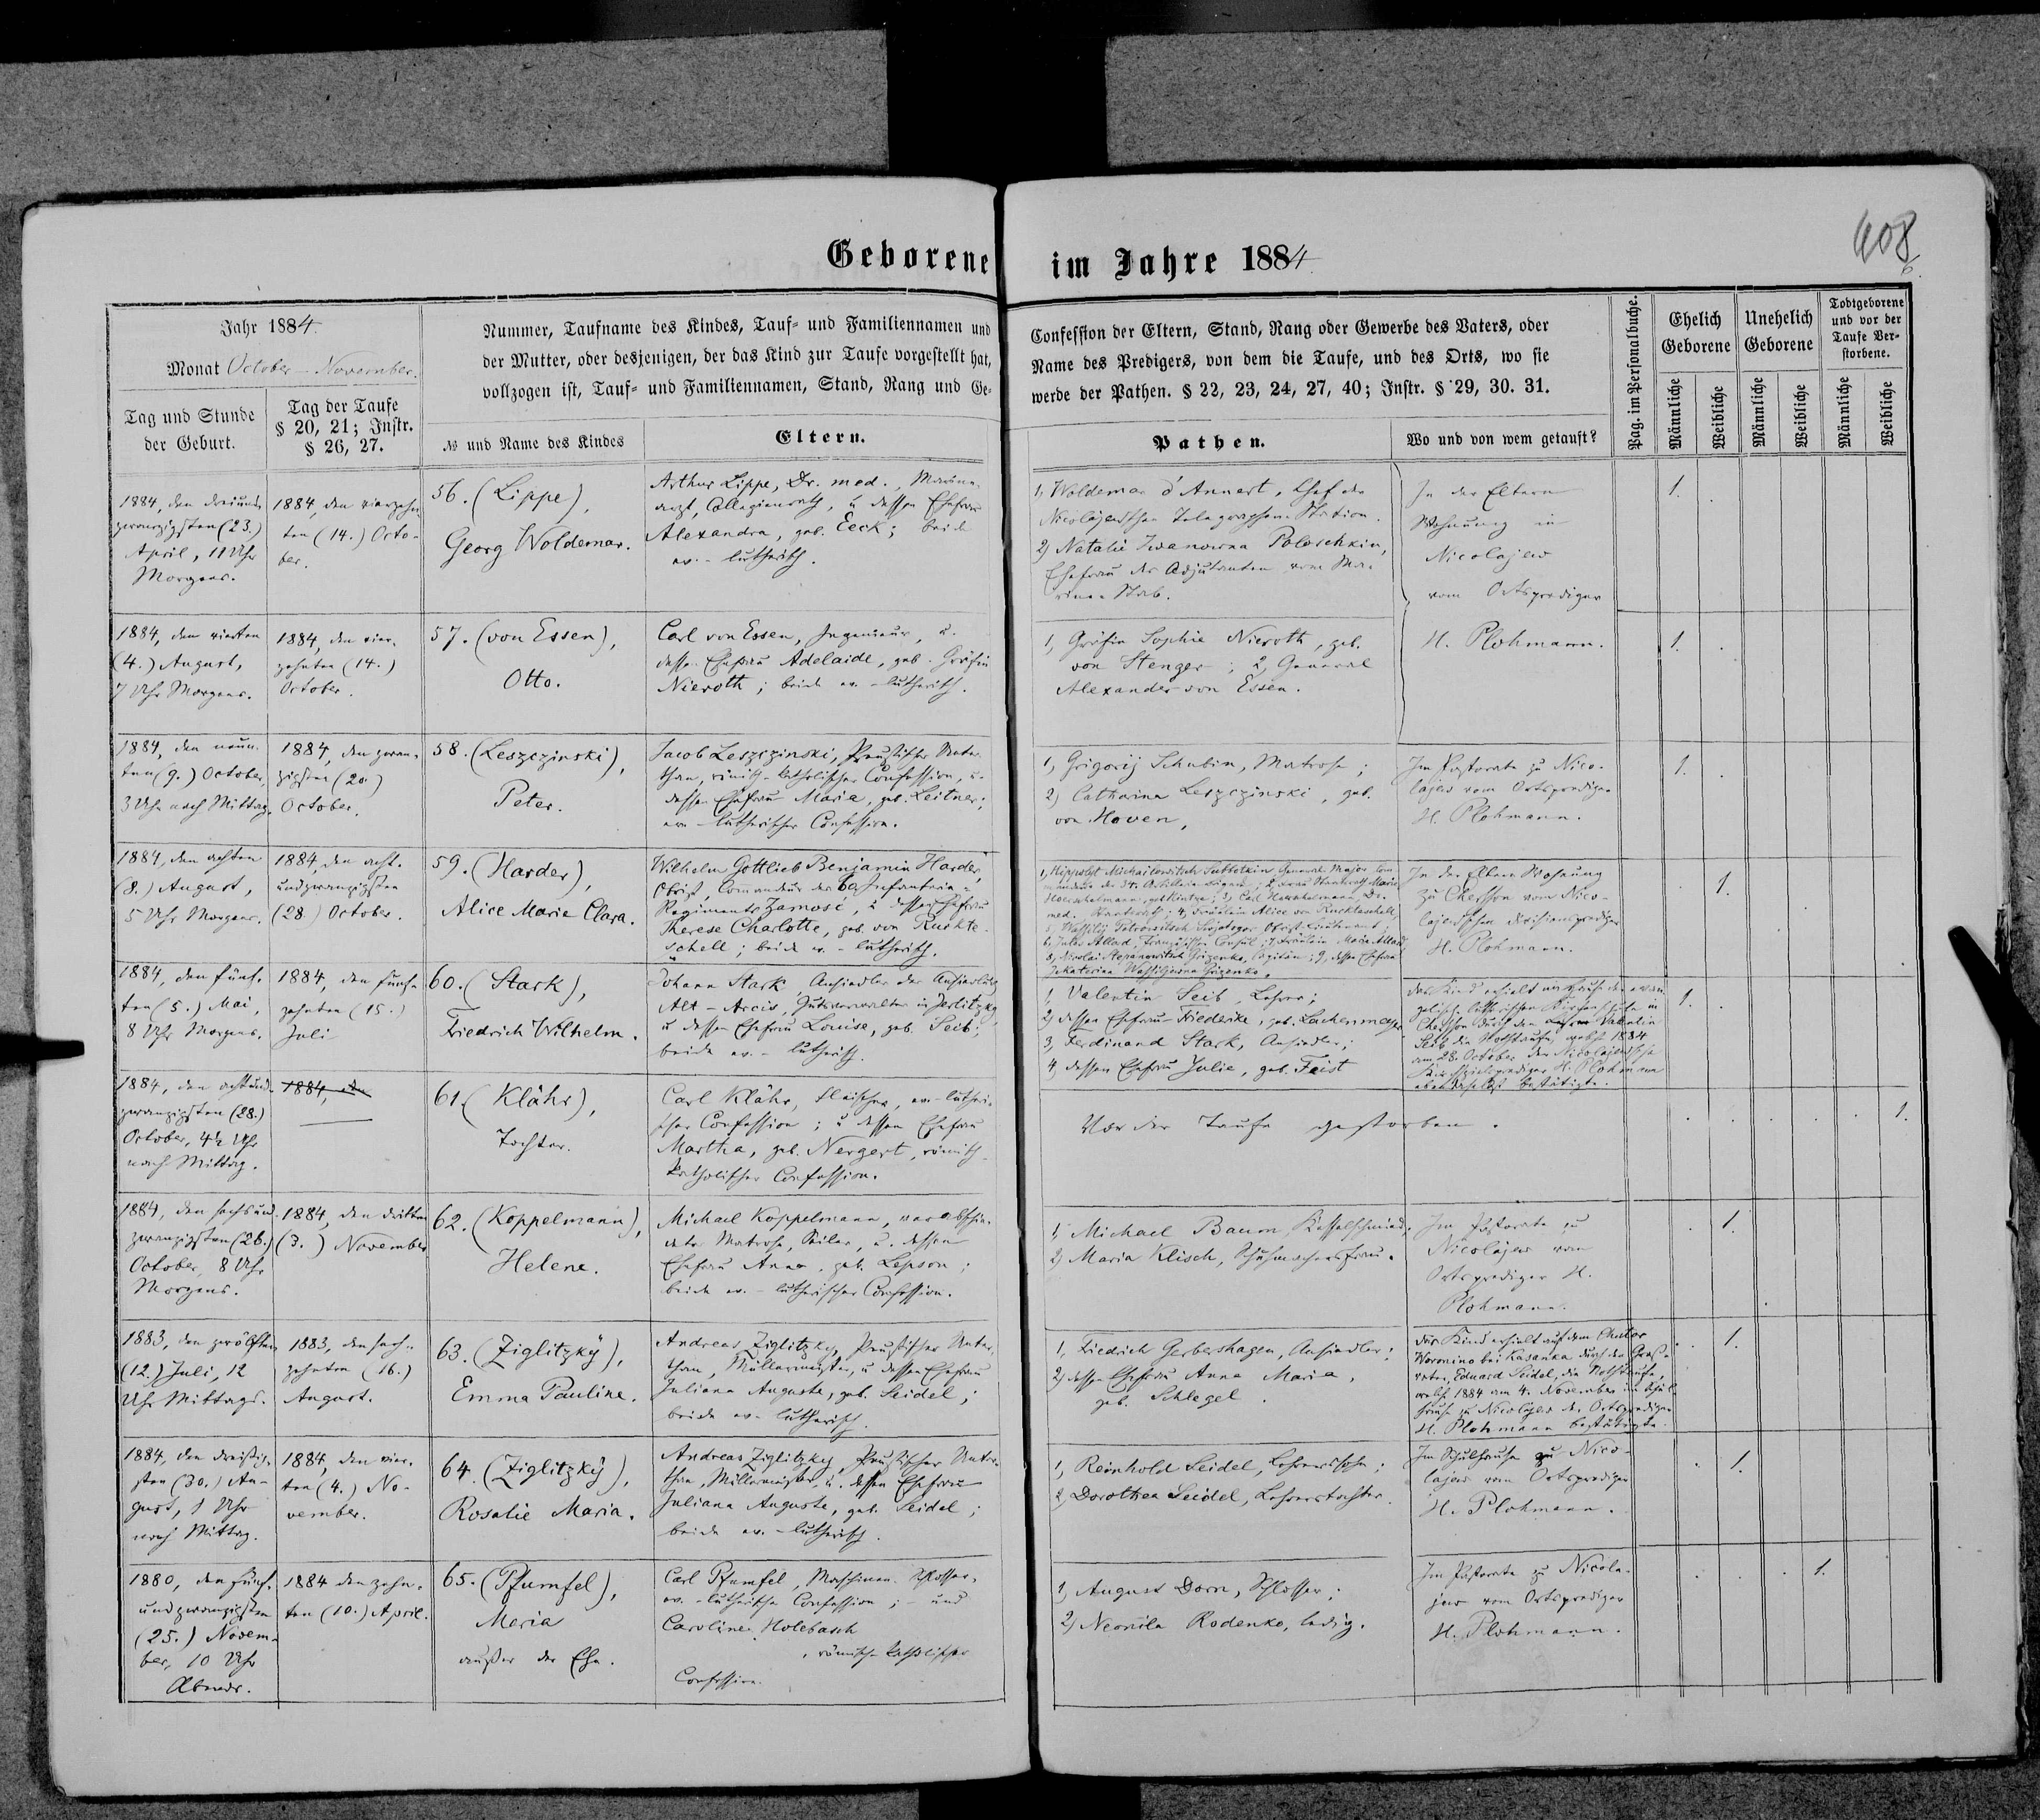 408
6.
Geborene im Jahre 1884.
Jahr 1884.
Monat October - November.
Tag und Stunde
der Geburt.
Tag der Taufe
§ 20, 21; Instr.
§ 26, 27.
Nummer, Taufname des Kindes, Tauf- und Familiennamen und
der Mutter, oder desjenigen, der das Kind zur Taufe vorgestellt hat,
vollzogen ist, Tauf- und Familiennamen, Stand, Rang und Ge-
№ und Name des Kindes
Eltern.
Confession der Eltern, Stand, Rang oder Gewerbe des Vaters, oder
Name des Predigers, von dem die Taufe, und des Orts, wo sie
werde der Pathen. § 22, 23, 24, 27, 40; Instr. § 29, 30. 31.
Pathen.
Wo und von wem getauft?
Pag. im Personalbuche.
Ehelich
Geborene
Unehelich
Geborene
Todtgeborene
und vor der
Taufe Ver-
storbene.
Männliche
Weibliche
Männliche
Weibliche
Männliche
Weibliche
1884, den dreiund-
zwanzigsten (23.)
April, 11 Uhr
Morgens.
1884, den vierzehn-
ten (14.) Octo-
ber.
56. (Lippe),
Georg Woldemar.
Arthur Lippe, Dr. med., Marine-
arzt, Collegienrath, u dessen Ehefrau
Alexandra, geb. Eeck; beide
ev.-lutherisch.
1, Woldemar d'Annert, Chef der
Nicolajewschen Telegraphen Station.
2) Natalie Iwanowna Poloschkin,
Ehefrau des Adjutanten vom Ma-
rine-Stab.
In der Eltern
Wohnung in
Nicolajew
vom Ortsprediger
H. Plohmann.
1.
1884, den vierten
(4.) August,
7 Uhr Morgens.
1884, den vier-
zehnten (14.)
October.
57. (von Essen),
Otto.
Carl von Essen, Ingenieur, u.
dessen Ehefrau Adelaide, geb. Gräfin
Nieroth; beide ev.-lutherisch.
1, Gräfin Sophie Nieroth, geb.
von Stenger; 2, General
Alexander von Essen.
1.
1884, den neun-
ten (9.) October,
3 Uhr nach Mittag.
1884, den zwan-
zigsten (20.)
October.
58. (Leszczinski),
Peter.
Jacob Leszczinski, Preußischer Unter-
than, römisch-katholischer Confession, u.
dessen Ehefrau Maria, geb. Leitner;
ev.-lutherischer Confession.
1, Grigorij Schubin, Matrose;
2) Catharina Leszczinski, geb.
von Hoven,
Im Pastorate zu Nico-
lajew vom Ortsprediger
H. Plohmann.
1.
1884, den achten
(8.) August,
5 Uhr Morgens.
1884, den acht-
undzwanzigsten
(28.) October.
59. (Harder),
Alice Marie Clara.
Wilhelm Gottlieb Benjamin Harder,
Obrist, Comandeur des Infanterie-
Regiments Zamosc, u dessen Ehefrau
Therese Charlotte, geb. von Ruckte-
schell; beide ev.-lutherisch.
1, Hippolyt Michailowitsch Subbotkin General Major Com-
mandeur der 34. Artillerie Brigade; 2, Frau Staatsrath Marie
Hoerschelmann, geb. Hintze; 3, Carl Hoerschelmann, Dr.
med. Staatsrath; 4, Fräulein Alice von Rucktaschell,
5, Wassilij Petrowitsch Obrist-Lieutenant;
6, Jules Allard, Französischer Consul; 7, Fräulein Marie Allard
8, Nicolai Stepanowitsch Grizenko, Capitän; 9, dessen Ehefrau
Jekaterina Wassiljewna Grizenko.
In der Eltern Wohnung
zu Cherson vom Nico-
lajewschen Divisionsprediger
H. Plohmann.
1.
1884, den fünf-
ten (5.) Mai,
8 Uhr Morgens.
1884, den fünf-
zehnten (15.)
Juli
60. (Stark),
Friedrich Wilhelm.
Johann Stark Ansiedler der Ansiedlung
Alt-Arcis, Gutsverwalter in Jerlitzky
u dessen Ehefrau Louise, geb. Seib;
beide ev.-lutherisch.
1, Valentin Seib, Lehrer;
2, dessen Ehefrau Friederike, geb. Lachenmayer
3, Ferdinand Stark, Ansiedler;
4, dessen Ehefrau Julie, geb. Feist
das Kind erhielt im Hause der evan-
gelisch-lutherischen Kirchenschule in
Cherson durch den Valentin
Seib die Nothtaufe, welche 1884
am 28. October der Nicolajewsche
Kirchspielsprediger H. Plohmann
ebendaselbst bestätigte.
1.
1884, den achtund-
zwanzigsten (28.)
October, 4½ Uhr
nach Mittag.
1884, den
61. (Klähr),
Tochter.
Carl Klähr, Fleischer, ev.-luthri-
scher Confession; u dessen Ehefrau
Martha, geb. Nergert, römisch-
katholischer Confession.
Vor der Taufe gestorben.
1.
1884, den sechsund-
zwanzigsten (26.)
October, 8 Uhr
Morgens.
1884, den dritten
(3.) November
62. (Koppelmann),
Helene.
Michael Koppelmann, verabschie-
deter Matrose, Seiler, u. dessen
Ehefrau Anna, geb. Lepson;
beide ev.-lutherischer Confession.
1, Michael Baum, Kesselschmied;
2) Maria Klisch, Schuhmachersfrau.
Im Pastorate zu
Nicolajew vom
Ortsprediger H.
Plohmann.
1.
1883, den zwölften
(12.) Juli, 12
Uhr Mittags.
1883, den sech-
zehnten (16.)
August.
63. (Ziglitzky),
Emma Pauline.
Andreas Ziglitzky, Preußischer Unter-
than, Müllermeister, u dessen Ehefrau
Juliana Auguste, geb. Seidel;
beide ev.-lutherisch.
1, Friedrich Gerbershagen, Ansiedler;
2) dessen Ehefrau Anna Maria,
geb. Schlegel.
das Kind erhielt auf dem Chutor
Woronino bei Kasanka durch den Groß-
vater, Eduard Seidel, die Nothtaufe,
welche 1884 am 4. November im Schul-
hause zu Nicolajew der Ortsprediger
H. Plohmann bestätigte.
1.
1884, den dreißig-
sten (30.) Au-
gust, 1 Uhr
nach Mittag.
1884, den vier-
ten (4.) No-
vember.
64. (Ziglitzky),
Rosalie Maria.
Andreas Ziglitzky, Preußischer Unter-
than, Müllermeister, u. dessen Ehefrau
Juliana Auguste, geb. Seidel;
beide ev.-lutherisch.
1, Reinhold Seidel, Lehrerssohn;
2, Dorothea Seidel, Lehrerstochter.
Im Schulhause zu Nico-
lajew vom Ortsprediger
H. Plohmann.
1.
1880, den fünf-
undzwanzigsten
(25.) Novem-
ber, 10 Uhr
Abends.
1884 den zehn-
ten (10.) April.
65. (Pfumfel),
Meria
außer der Ehe.
Carl Pfumfel, Maschinen-Schlosser,
ev.-lutherischer Confession; - und
Caroline Holebasch
, römisch-katholischer
Confession.
1, August Dorn, Schlosser;
2) Neonila Rodenko, ledig.
Im Pastorate zu Nicola-
jew vom Ortsprediger
H. Plohmann.
1.